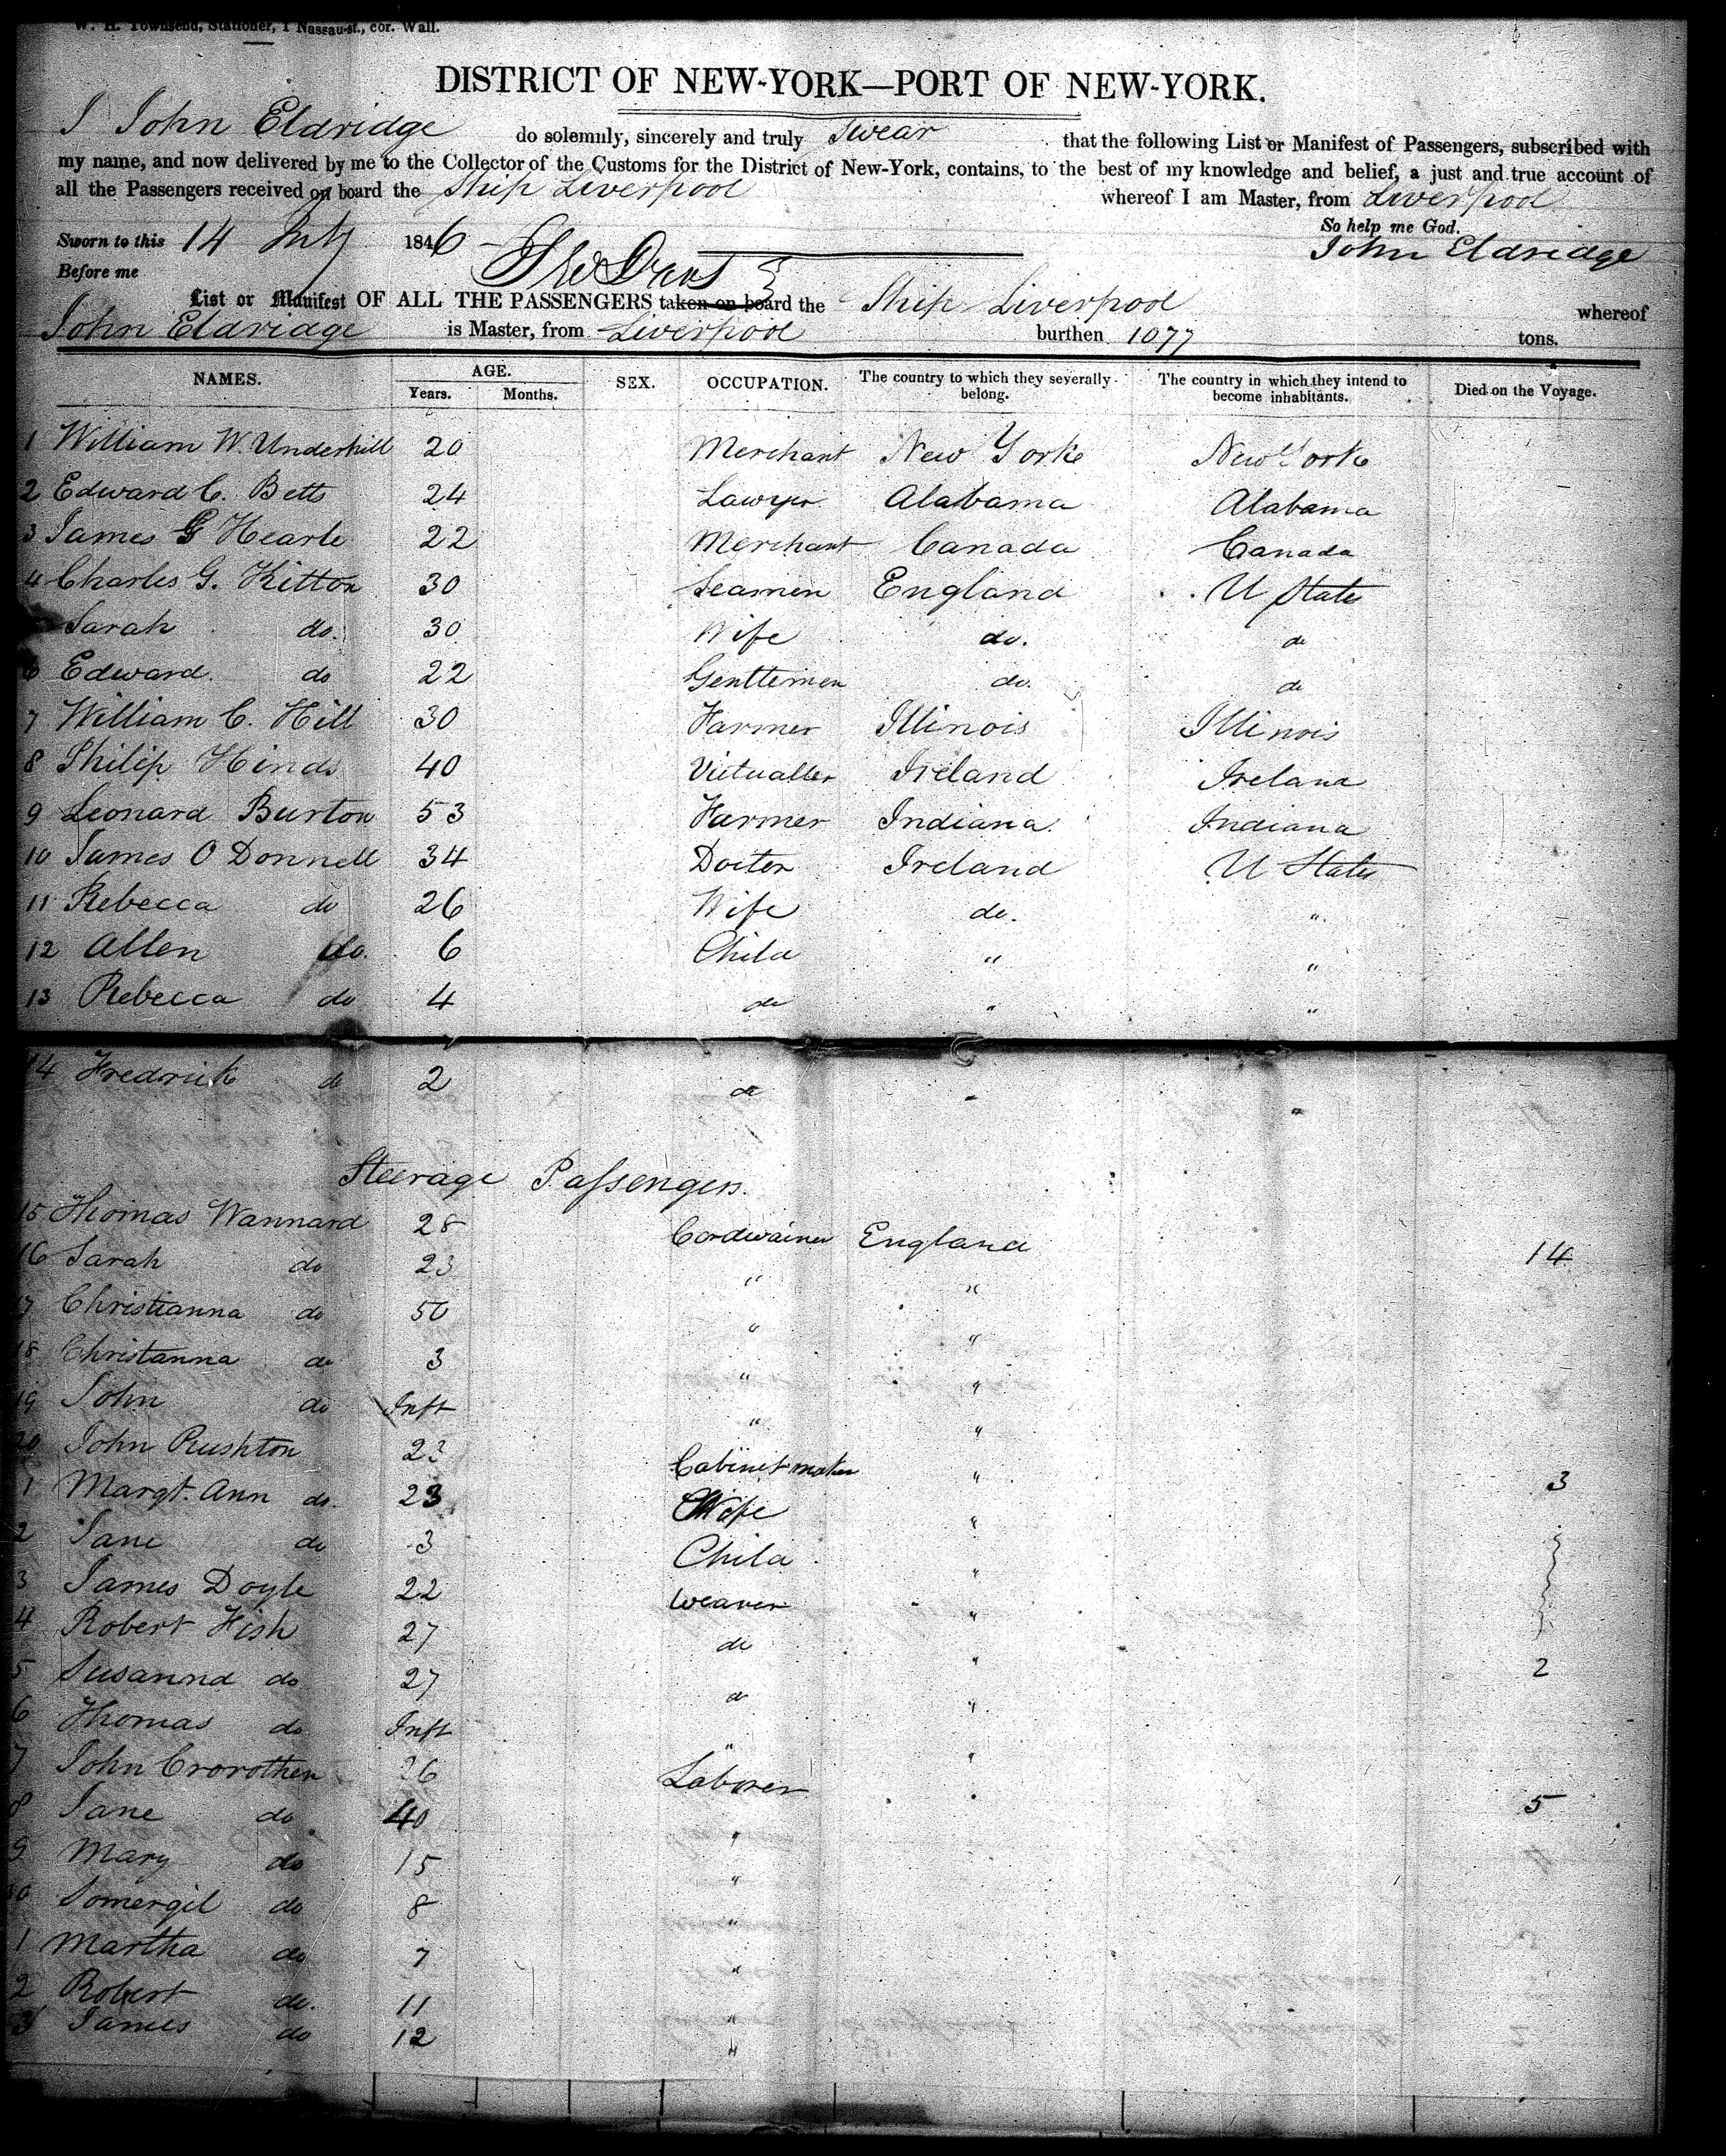 W. H. Townsend, Stationer, 1 Nassau-st., cor. Wall.
DISTRICT OF NEW-YORK—PORT OF NEW-YORK.
I John Eldridge do solemnly, sincerely and truly swear that the following List or Manifest of Passengers, subscribed with
my name, and now delivered by me to the Collector of the Customs for the District of New-York, contains, to the best of my knowledge and belief, a just and true account of
all the Passengers received on board the Ship Liverpool whereof I am Master, from Liverpool
So help me God.
Sworn to this 14 July 1846 John Eldridge
Before me
List or Manifest OF ALL THE PASSENGERS taken on board the Ship Liverpool whereof
John Eldridge is Master, from Liverpool burthen 1077 tons.
NAMES. AGE. Years. Months. SEX. OCCUPATION. The country to which they severally belong. The country in which they intend to become inhabitants. Died on the Voyage.
1 William W. Underhill 20 Merchant New York New York
2 Edward C. Betts 24 Lawyer Alabama Alabama
3 James G Hearle 22 Merchant Canada Canada
4 Charles G. Kitton 30 Seamen England U States
Sarah do. 30 Wife do. do
6 Edward. do 22 Genttemen do. do
7 William C. Hill 30 Farmer Illinois Illinois
8 Philip Hinds 40 Victualler Ireland Ireland
9 Leonard Burton 53 Farmer Indiana Indiana
10 James O Donnell 34 Docter Ireland U States
11 Rebecca do 26 Wife do. "
12 Allen do. 6 Child " "
13 Rebecca do 4 do " "
14 Fredrick do 2 do " "
Steerage Passengers.
15 Thomas Wannard 28 Cordwainer England 14
16 Sarah do 23 " "
17 Christianna do 50 " "
18 Christanna do 3 " "
19 John do Inft " "
20 John Rushton 23 Cabinet maker " 3
1 Margt. Ann do. 23 Wife "
2 Jane do 3 Child "
3 James Doyle 22 Weaver "
4 Robert Fish 27 do "
2
5 Susannd do 27 do "
6 Thomas do Inft " "
7 John Crorothen 36 Laborer "
5
8 Jane do 40 "
9 Mary do 15 "
30 Somergil do 8 "
1 Martha do 7 "
2 Robert do. 11 "
3 James do 12 "